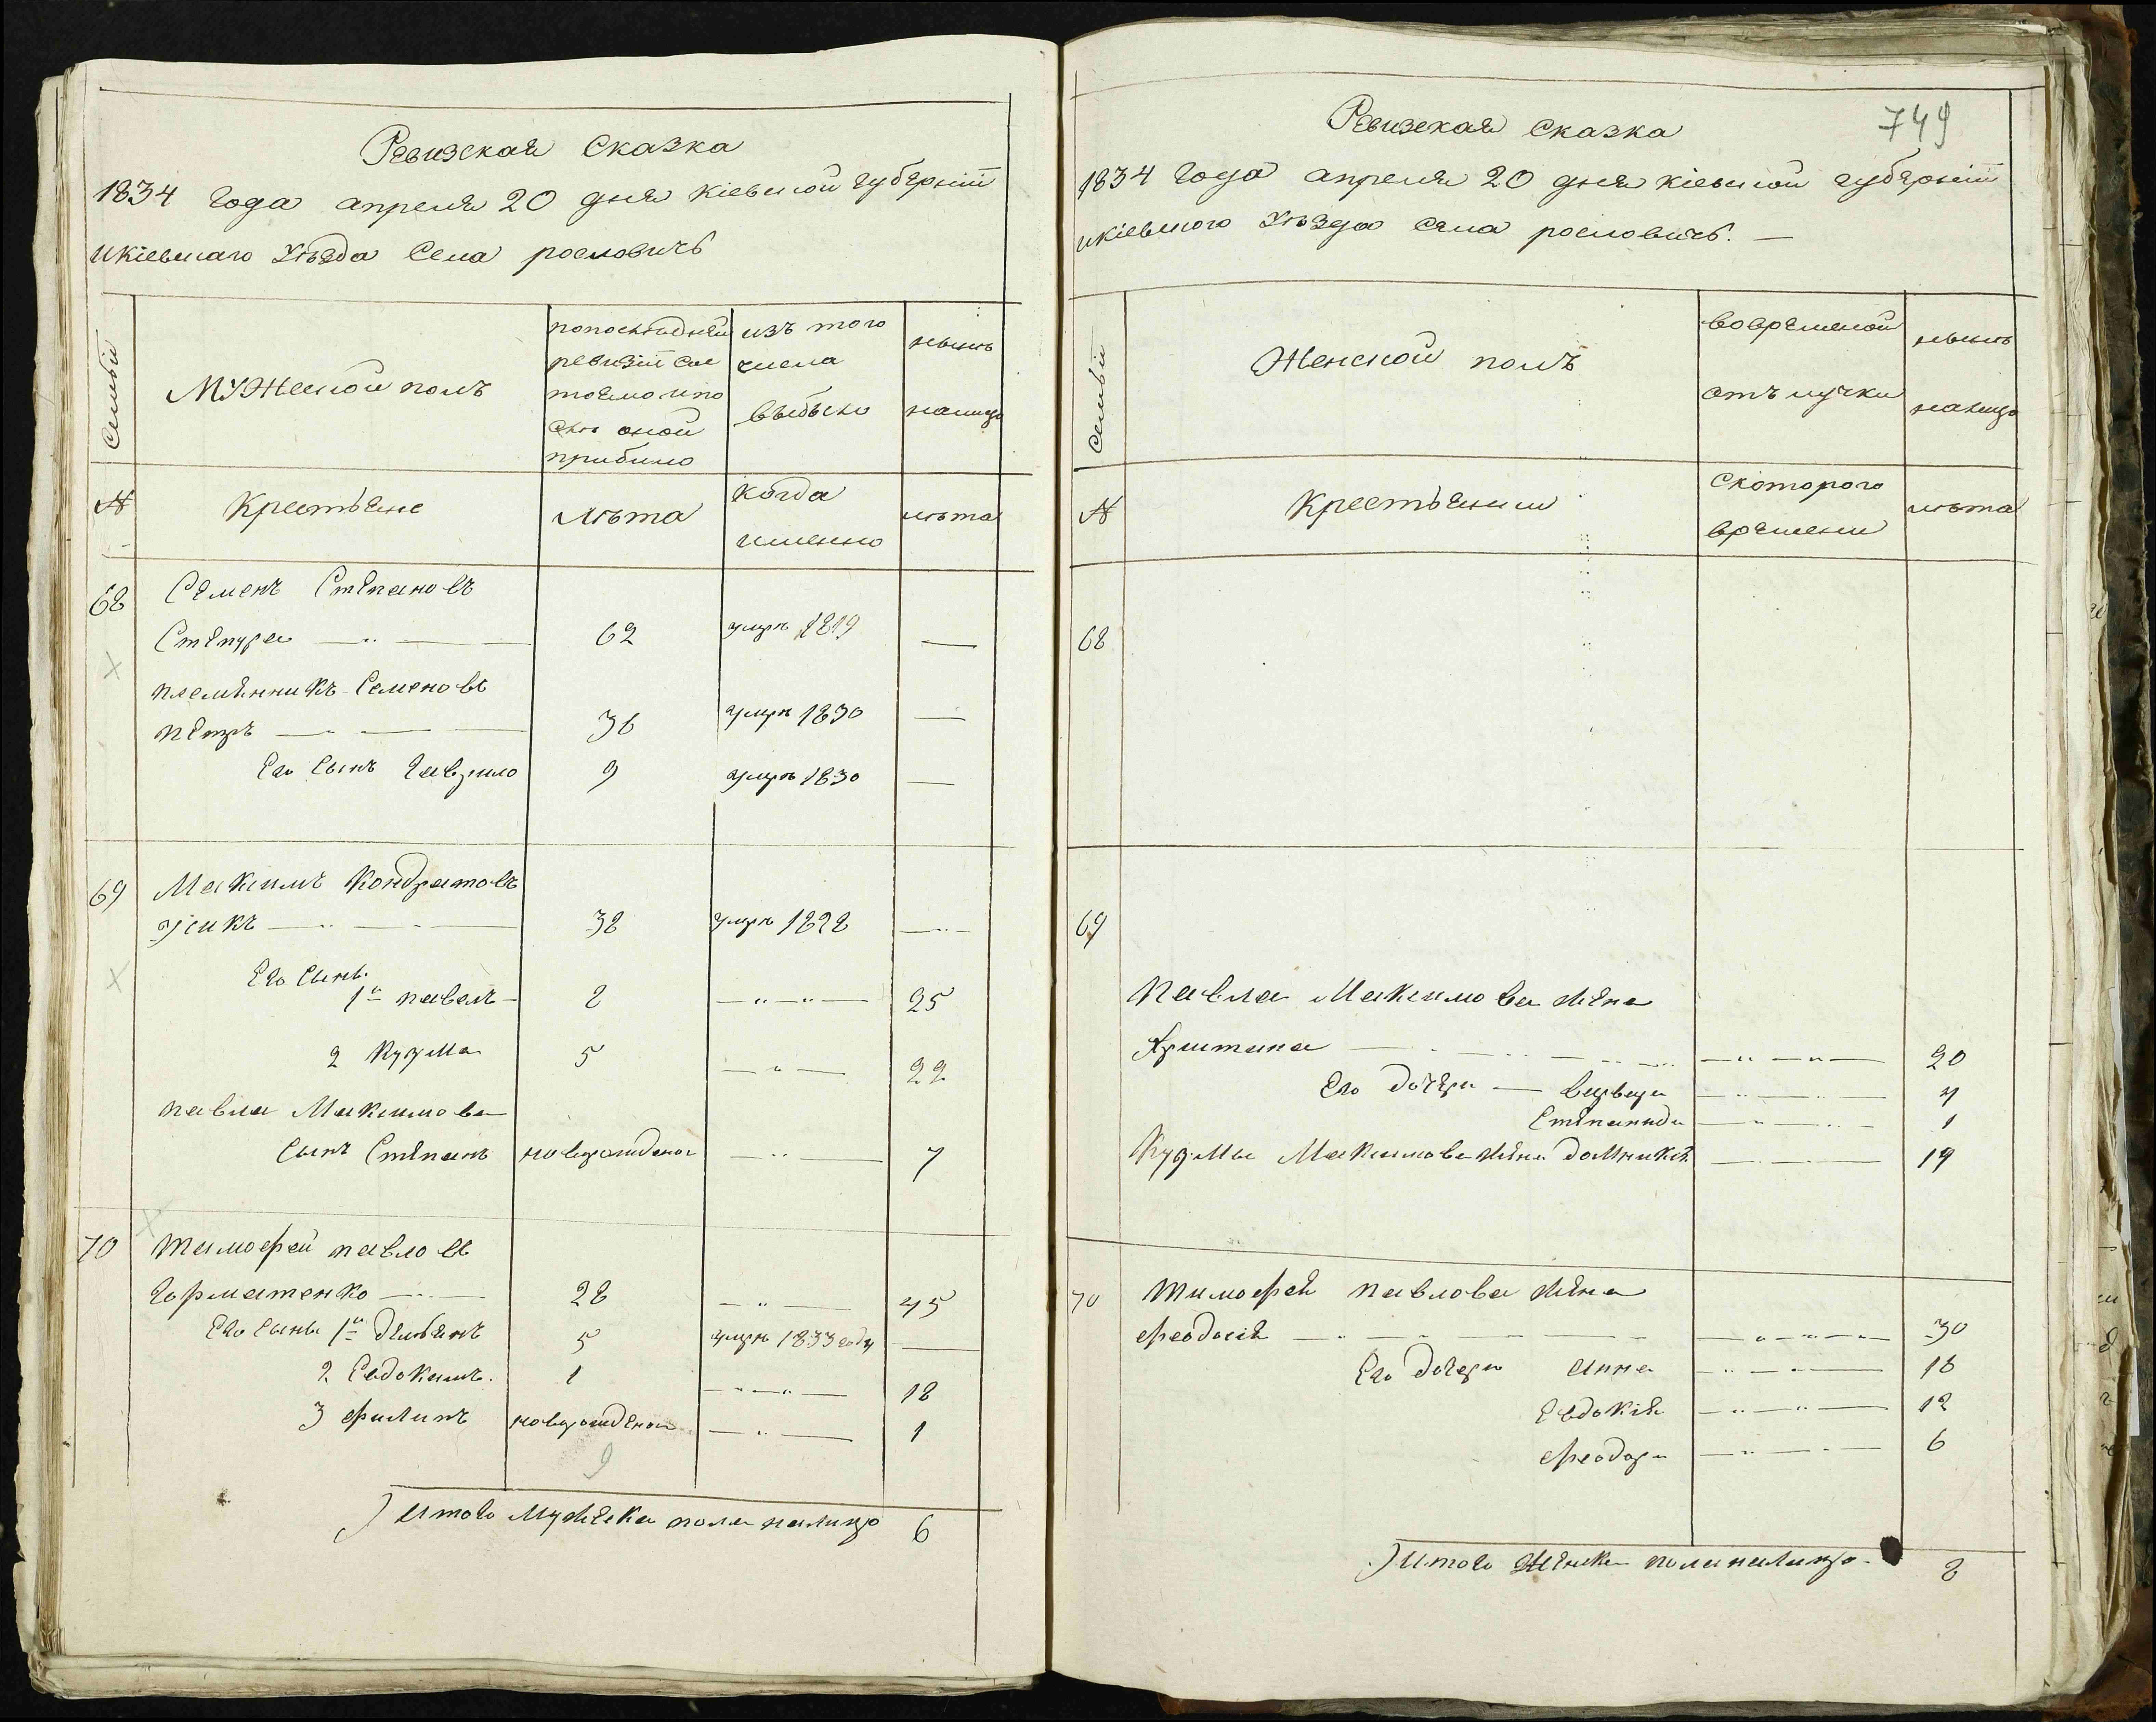 Ревизская Сказка
1834 года апреля 20 дня кіевской губерніи
икіевскаго Уѣзда Села рословичь
Семьи
Мужеской полъ
попоследней
ревизіи сос
тояло ипо
слѣ оной
прибило
изъ того
числа
выбыло
нынѣ
налицо
№
Крестьяне
лѣта
когда
именно
лѣта
68
Семенъ Степановъ
Степура
62
умре 1819
племянникъ Семеновъ
петръ
36
умре 1830
Его Сынъ гаврило
9
умре 1830
69
Максимъ Кондратовъ
усикъ
38
умре 1828
Его Сынь
1й павелъ
8
25
2 Кузма
5
22
павла Максимова
Сынъ Степанъ
новорожденои
7
70
тимофей павловъ
гарматенко
28
45
Его Сынь 1й демянъ
5
умре 1833 году
2 Евдокимъ
1
18
3 филипъ
новорожденои
1
9
Итого Мужеска пола налицо
6
749
Ревизская Сказка
1834 года апреля 20 дня кіевской губерніи
икіевского Уѣзда Села рословичь.
Семьи
Женской полъ
вовременой
отълучки
нынѣ
налицо
№
Крестьянки
Скоторого
времени
лѣта
68
69
Павла Максимова жена
Христина
20
Его дочери
варвара
4
Степанида
1
Кузмы Максимова жена домникія
19
70
Тимофея павлова жена
феодосія
30
Его дочери
анна
16
Евдокія
12
феодора
6
Итого женска пола налицо
8